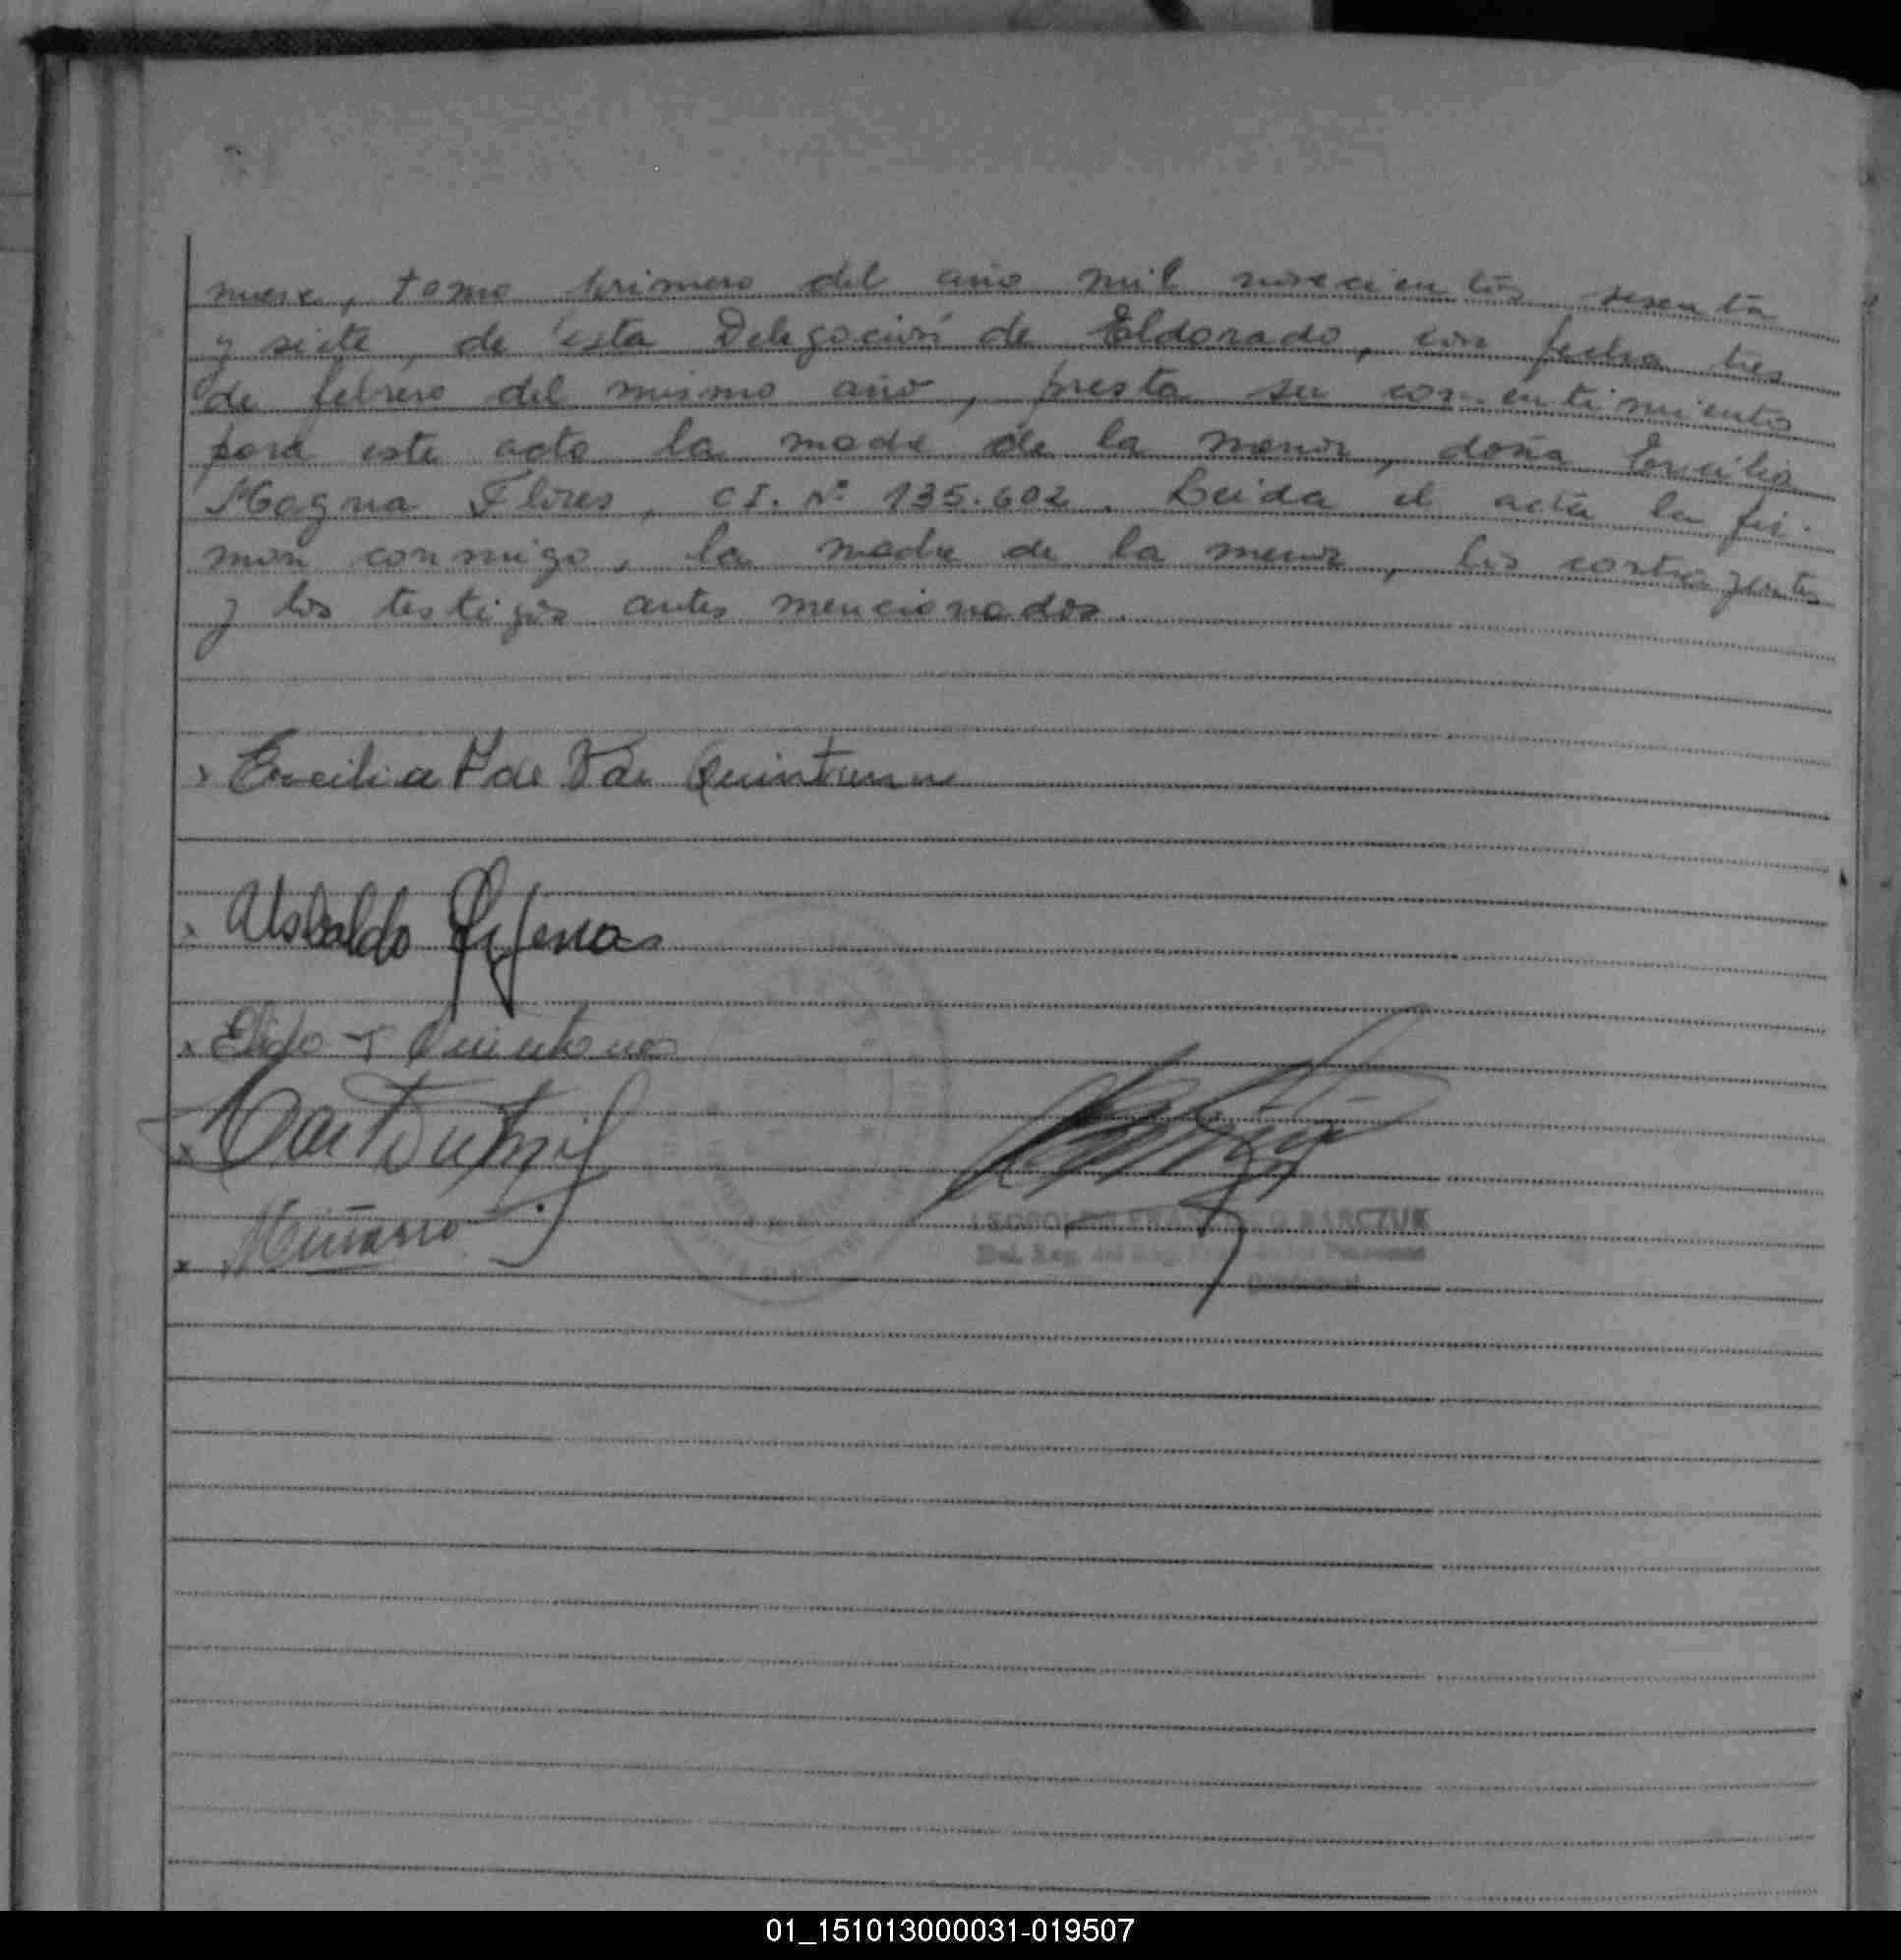 nueve, tomo primero del año mil novecientos sesenta
y siete, de esta Delegación de Eldorado, con fecha tres
de febrero del mismo año, presta su consentimiento
para este acto la madre de la menor, doña Ercilia
Magna Flores, C.I. Nº 135.602. Leida el acta la fir-
man conmigo, la madre de la menor, los contrayentes
y los testigos antes mencionados.
Ercilia F de V de Quintana
Usbaldo
Quintana
BARCZUK
Del. Reg. del Reg. de las Personas
01_151013000031-019507